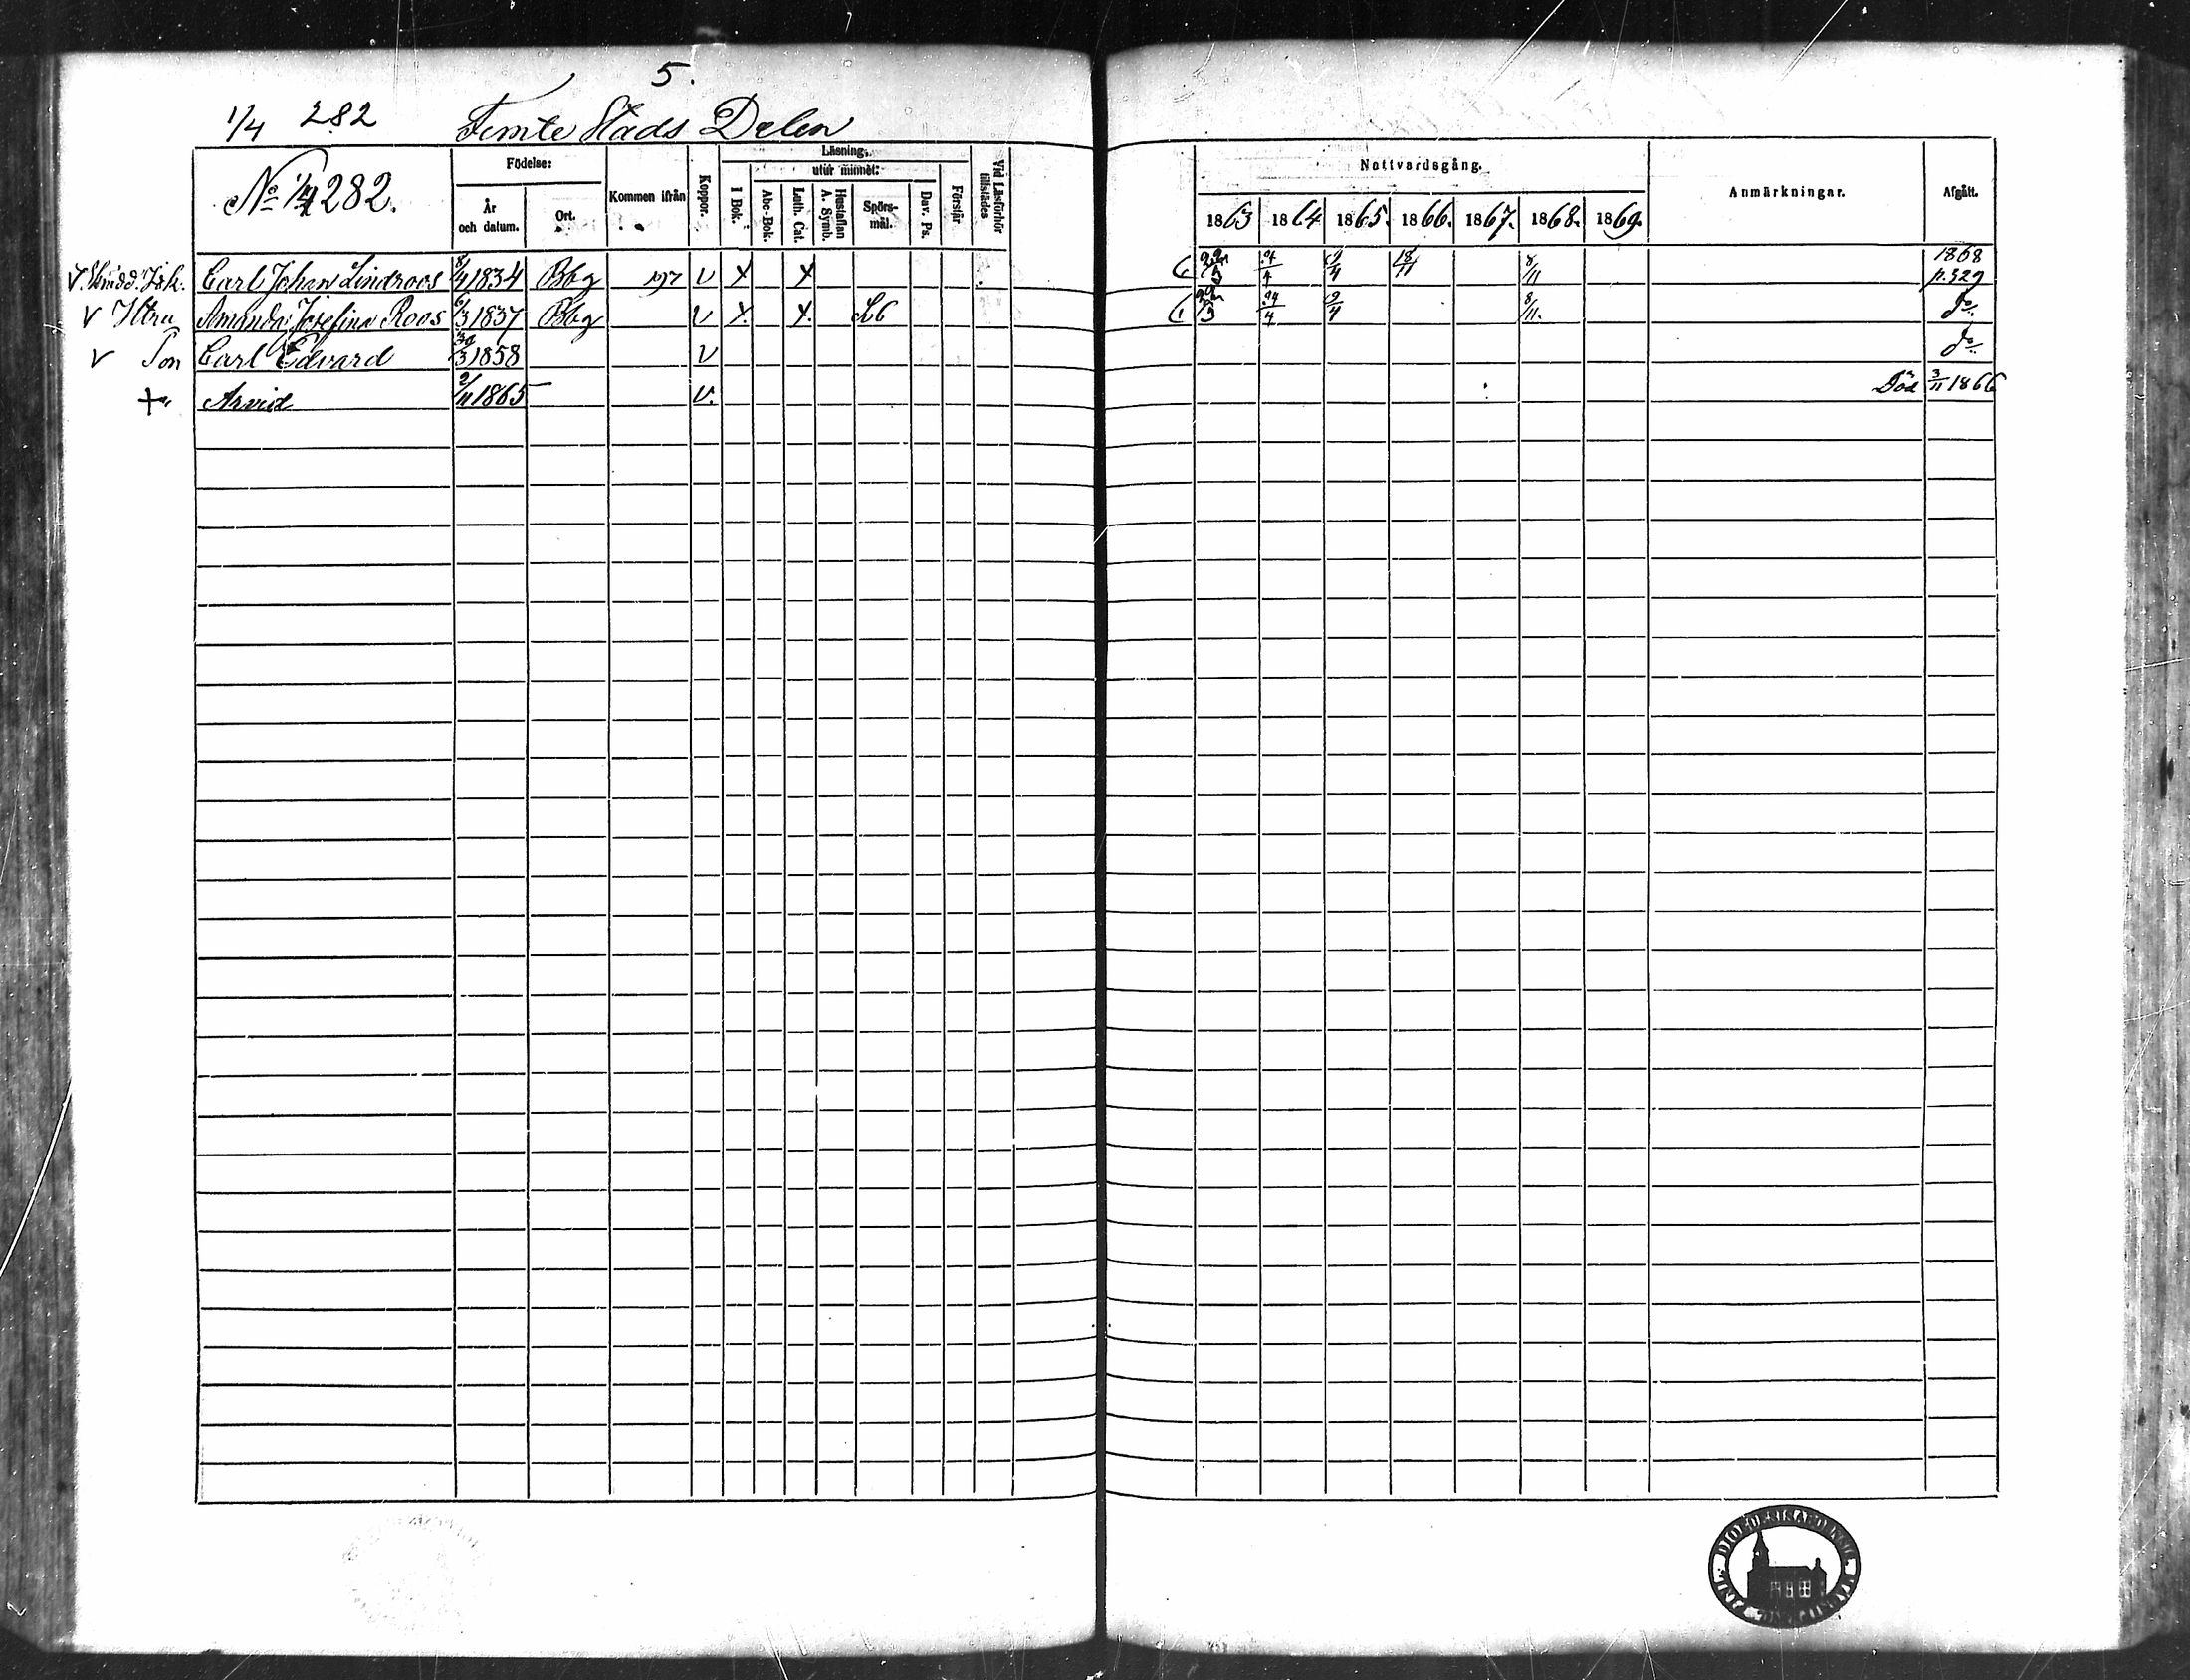 5.
1/4 282 Femte Stads Delen
No 1/4 282.
Födelse:
År och datum.
Ort.
Kommen ifrån
Koppor.
Läsning.
utur minnet:
I Bok.
Abc-Bok.
Luth. Cat.
Hustaflan A. Symb.
Spörs-mål.
Dav. Ps.
Förstår
Vid Läsförhör tillstädes
Nattvardsgång.
1863 1864 1865. 1866. 1867. 1868. 1869.
Anmärkningar.
Afgått.
Carl Johan Lindroos 8/4 1834 Bbg v x x 9/4 18/11 8/11 1868 p. 329
v Htru Amanda Josefina Roos 6/3 1837 Bbg v x. x. 9/4 8/11. do
v Son Carl Edvard 30/3 1858 v do
+ " Arvid 2/11 1865 v. Död 3/11 1866